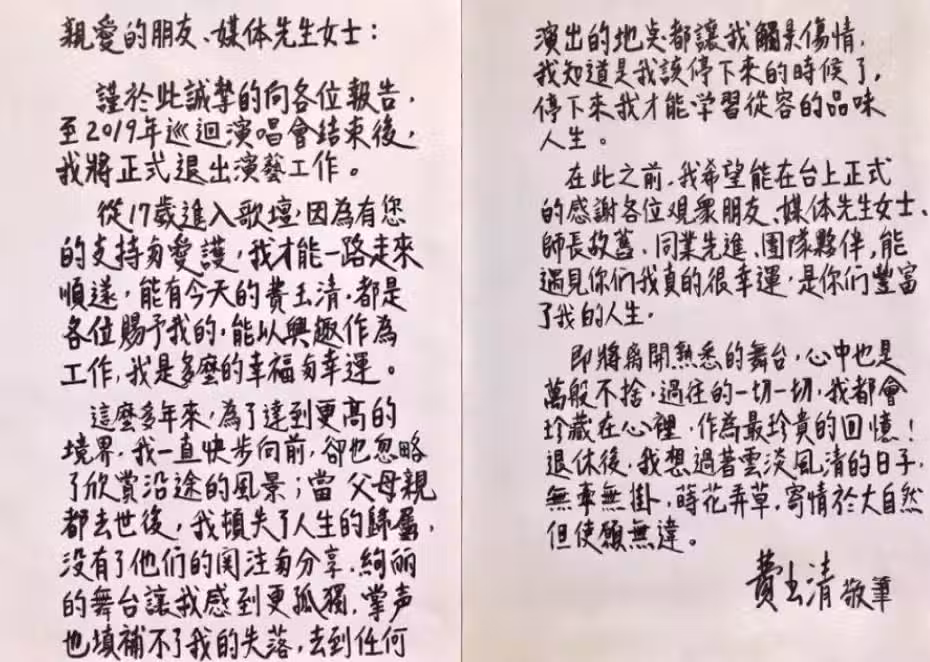 親愛的朋友、媒体先生女士：
謹於此誠摯的向各位報告，
至2019年巡迴演唱會结束後，
我將正式退出演藝工作。
從17歲進入歌壇，因為有您
的支持與愛護，我才能一路走來
順遂，能有今天的費玉清，都是
各位賜予我的，能以興趣作為
工作，我是多麼的幸福與幸運。
這麼多年來，為了達到更高的
境界，我一直快步向前，卻也忽略
了欣賞沿途的風景；當父母親
都去世後，我頓失了人生的歸屬，
没有了他们的関注與分享，絢丽
的舞台讓我感到更孤獨，掌声
也填補不了我的失落，去到任何
演出的地点都讓我觸景傷情，
我知道是我該停下來的時候了，
停下來我才能学習從容的品味
人生。
在此之前，我希望能在台上正式
的感謝各位观眾朋友、媒体先生女士、
師長故舊、同業先進、團隊夥伴，能
遇見你们我真的很幸運，是你们豐富
了我的人生，
即將离開熟悉的舞台，心中也是
萬般不捨，過往的一切一切，我都會
珍藏在心裡，作為最珍貴的回憶！
退休後，我想過著雲淡風清的日子，
無牽無掛，蒔花弄草，寄情於大自然
但使願無違。
費玉清 敬筆